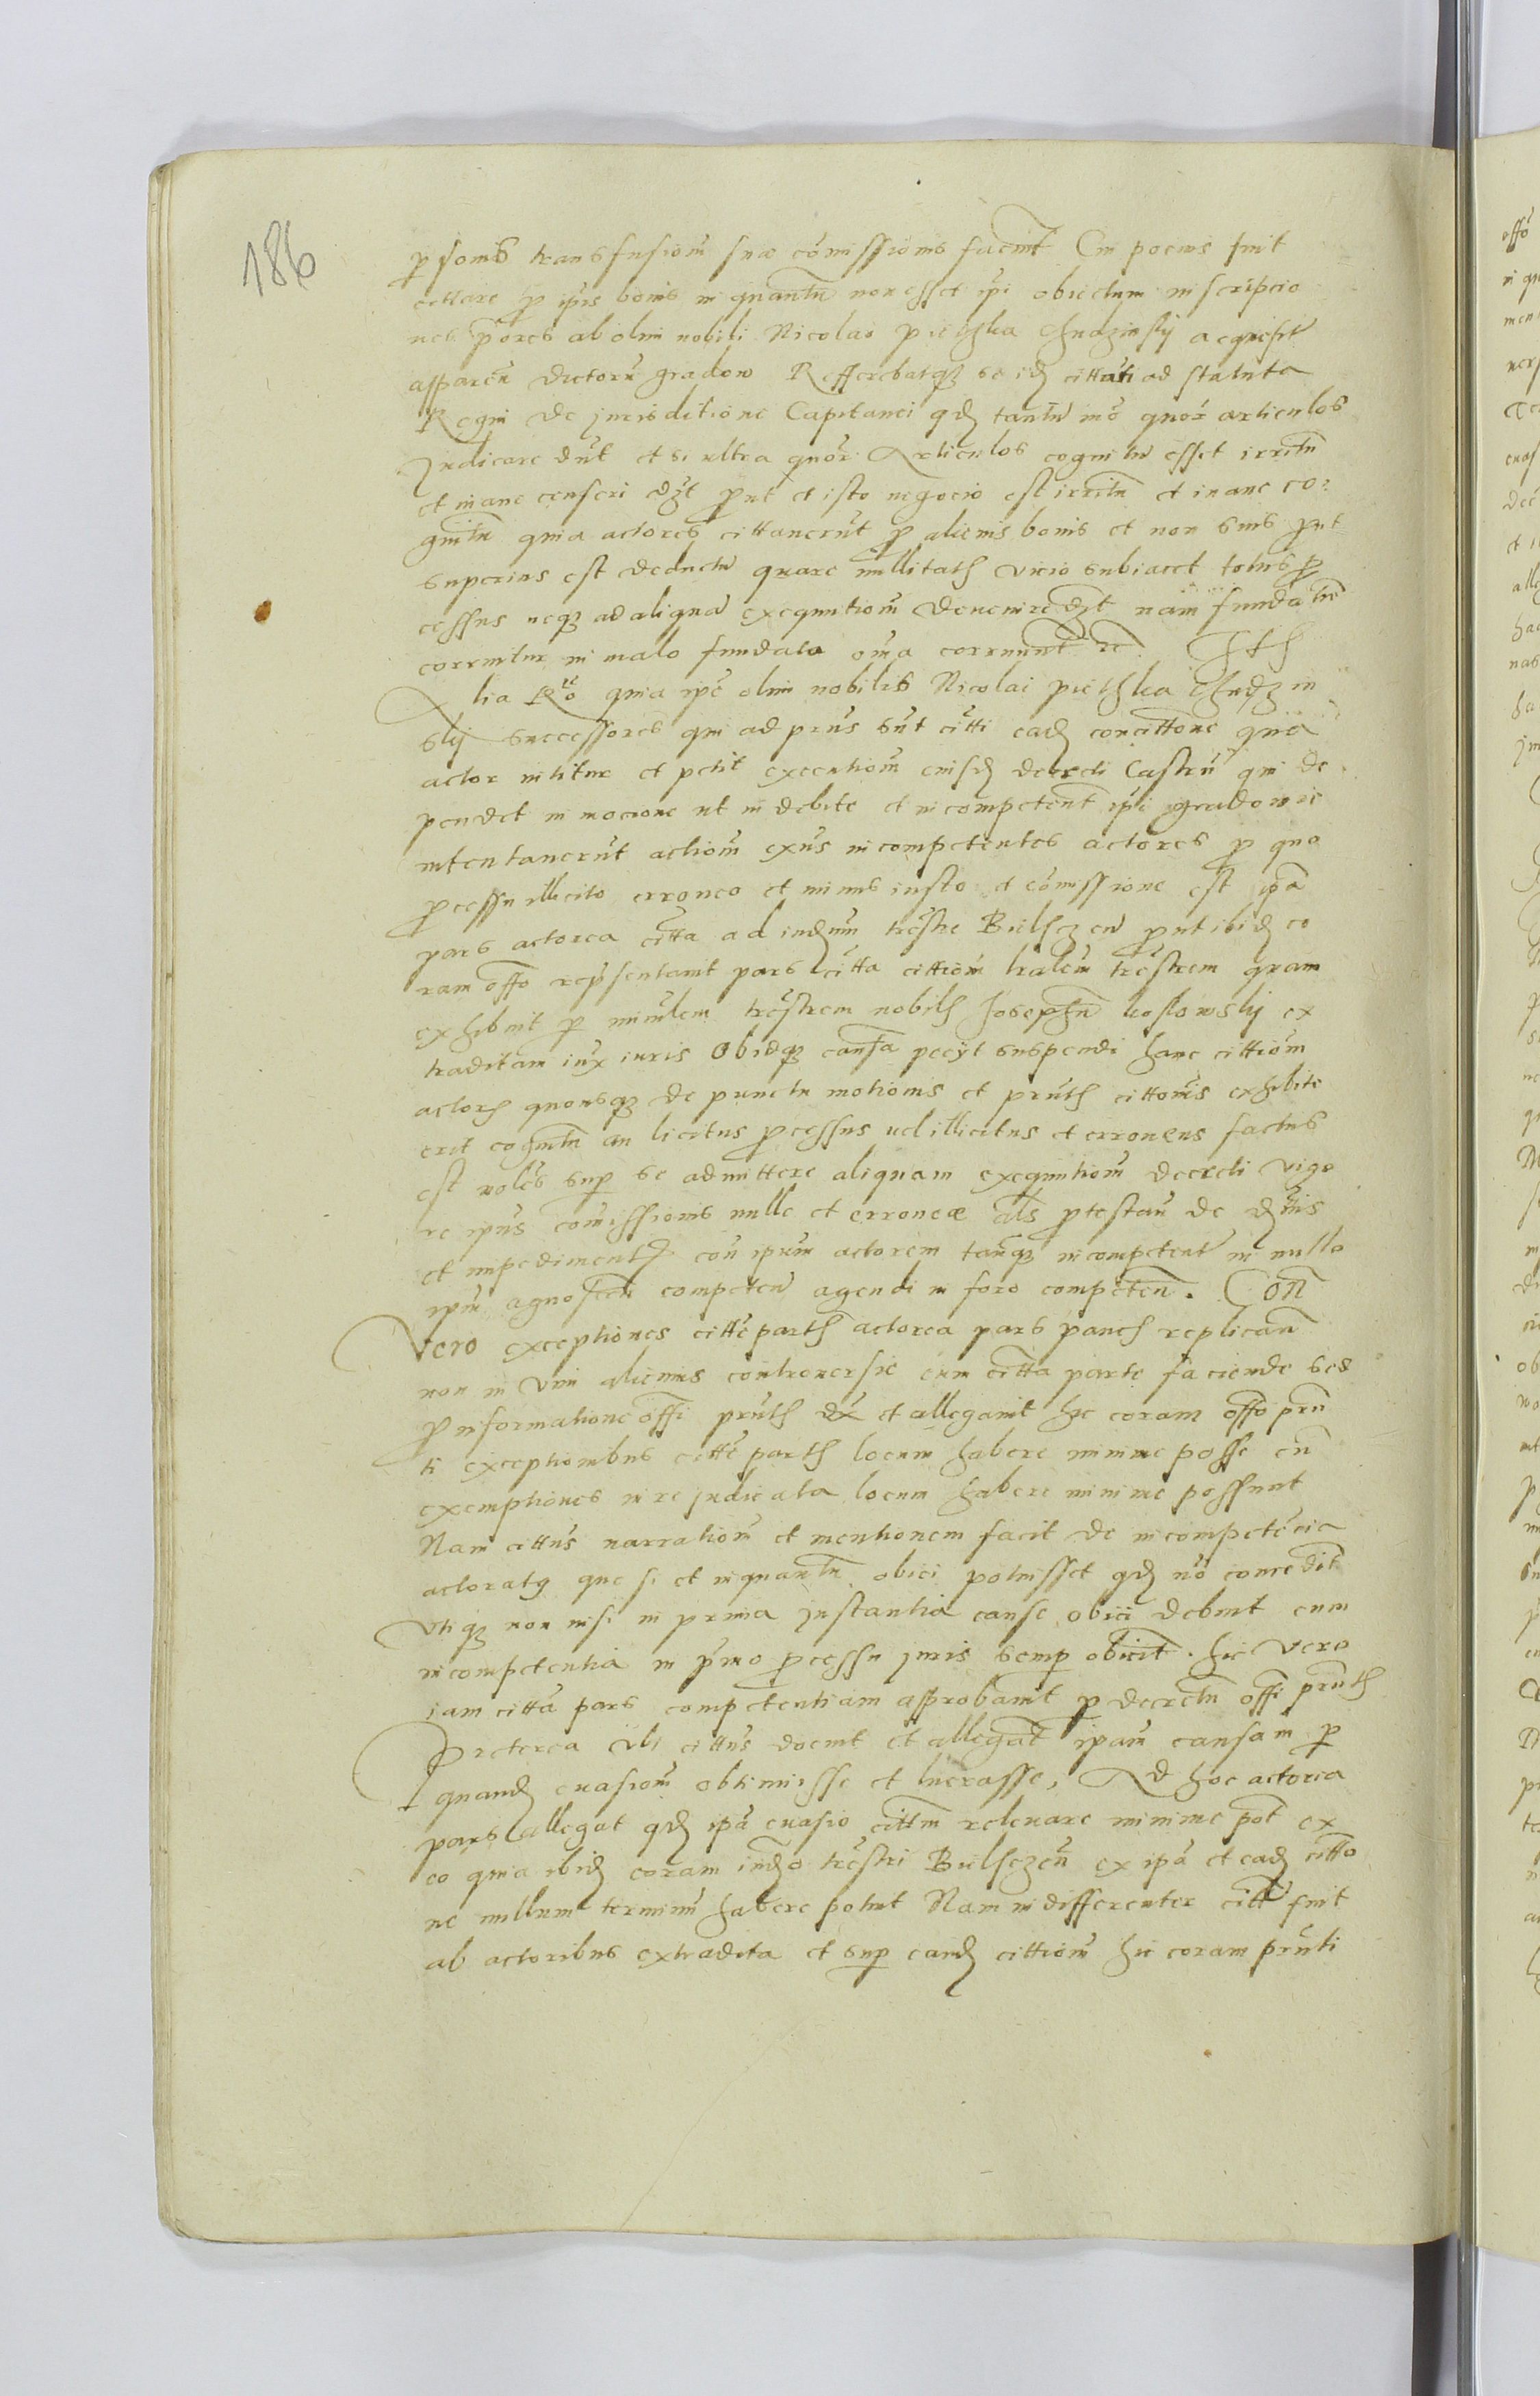 186
psonis transfusiom suæ comissionis fuerint Cui pocius fuit
cittare p ipis bonis in quantu non esset ipi obiectum inscripcio
nes pores ab olim nobili Nicolao pietzka Chadzinskij acquisit
apparen dictoru gradow Refferebatqz se id cittati ad statuta
Regni de jurisditione Capitanei qd tantu mo quor articulos
Judicare dnt et si ultra quor Articulos cognitu esset irritu
et inane censeri dzt put et isto negocio est irritu et inane co:
gnitu quia actores cittanerut p alienis bonis et non suis put
superius est deductu quare nullitatis vicio subiacet totus p
cessus neqz ad aliqua exequutiom deuenire dzt nam fundatie
corruitur in malo fundata oia corruunt
lia quia ipe olim nobilis Nicolai pietzka Chudzin
skij successores qui ad prns sut citti ead concittone quia
actor nititur et petit executiom eiusd decreti Castrn qui de
pendet in mocione ut indebite et incompetent ipi gradowie
intentanerut actiom exns incompetentes actores p quo
pcessu illicito erroneo et minus iusto et comissione est ipa
pars actorea citta ad iudium trestre Bielsczen put ibid co
ram offo repsentanit pars citta cittiom tralem trestrem quam
exhibuit p minlem trestrem nobil Josephu koslowskij ex
traditam iux iuris Obidqz causa pecijt suspendi hanc cittiom
actor quousqz de punctu motionis et prnt cittonis exhibite
erit cognitu an licitus pcessus uel illicitus et erroneus factus
est noles sup se admittere aliquam exequutiom decreti vigo
re ipius comissionis nulle et erroneæ als ptestan de dmis
et impediment con ipum actorem tanqz incompetent in nullo
ipm agnoscen competen agendi in foro competen. Con
Vero exceptiones citte partis actorea pars paucis replicans
non in vim alicuius controuersie cum citta parte faciende sed
p informatione offi prntis dx et alleganit hic coram offo prn
ti exceptionibus citte partis locum habere minime posse cu
exemptiones in re judicata locum habere minime possunt
Nam cittus narratiom et mentionem facit de incompetencia
actoratq que si et inquantu obici potuisset qd no concedit
Vtiqz non nisi in prima instantia cause obici debuit cum
incompetentia in pmo pcessu juris semp obicit. hic vero
iam citta pars competentiam approbanit p decretu offi prntis
Preterea vbi cittus docuit et allegat ipam causam p
quand euasiom obtinuisse et lucrasse, Ad hoc actorea
pars allegat qd ipa euasio cittm releuare minime pot ex
eo quia ibid coram iudo trestri Bielsczen ex ipa et ead citto
ne nullum terminu habere potuit Nam indifferenter citt fuit
ab actoribus extradita et sup eand cittiom hic coram prnti